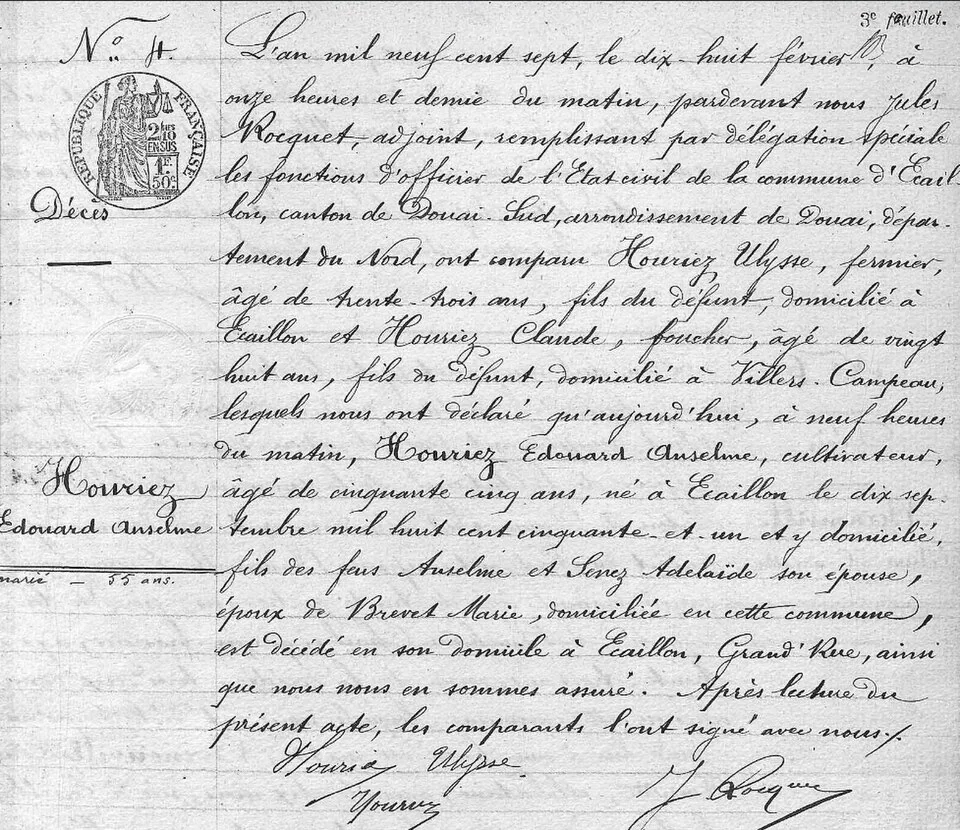 3e feuillet.
No 4
RÉPUBLIQUE FRANÇAISE
2/10 EN SUS
1F. 50c.
Décès
Houriez
Edouard Anselme
marié – 55 ans.
L'an mil neuf cent sept, le dix-huit février, à
onze heures et demie du matin, pardevant nous Jules
Rocquet, adjoint, remplissant par délégation spéciale
les fonctions d'officier de l'Etat civil de la commune d'Ecail-
lon, canton de Douai-Sud, arrondissement de Douai, dépar-
tement du Nord, ont comparu Houriez Ulysse, fermier,
âgé de trente-trois ans, fils du défunt, domicilié à
Ecaillon et Houriez Claude, boucher, âgé de vingt
huit ans, fils du défunt, domicilié à Villers-Campeau,
lesquels nous ont déclaré qu'aujourd'hui, à neuf heures
du matin, Houriez Edouard Anselme, cultivateur,
âgé de cinquante cinq ans, né à Ecaillon le dix sep-
tembre mil huit cent cinquante-et-un et y domicilié,
fils des feus Anselme et Senez Adelaïde son épouse,
époux de Brevet Marie, domiciliée en cette commune,
est décédé en son domicile à Ecaillon, Grand'Rue, ainsi
que nous nous en sommes assuré. Après lecture du
présent acte, les comparants l'ont signé avec nous.
Houriez Ulysse
Houriez
J Rocquet